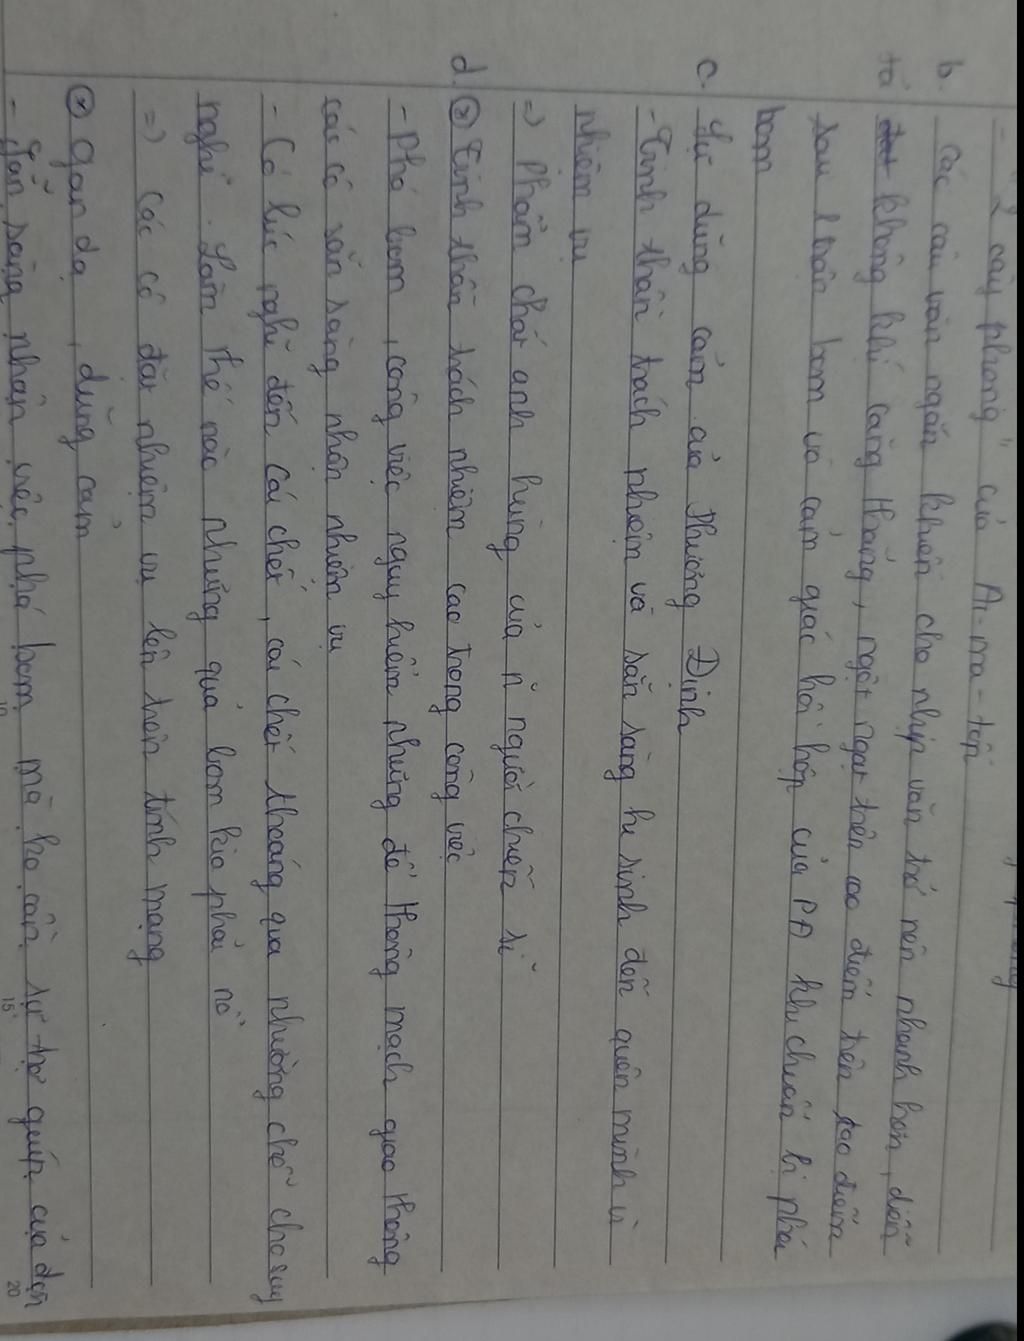 - 2 cây phong" của Ai-ma-tốp
b. Các câu văn ngắn khiến cho nhịp văn trở nên nhanh hơn, diễn
tả không khí căng thẳng, ngột ngạt trên cao điểm trên cao điểm
sau 1 trận bom và cảm giác hồi hộp của PĐ khi chuẩn bị phá
bom
c. Sự dũng cảm của Phương Định
- Tinh thần trách nhiệm và sẵn sàng hi sinh đến quên mình vì
nhiệm vụ
=> Phẩm chất anh hùng của n~ người chiến sĩ
d. * Tinh thần trách nhiệm cao trong công việc
- Phá bom, công việc nguy hiểm nhưng để thông mạch giao thông
các cô sẵn sàng nhận nhiệm vụ
- Có lúc nghĩ đến cái chết, cái chết thoáng qua nhường chỗ cho suy
nghĩ. Làm thế nào những quả bom kia phải nổ
=> Các cô đặt nhiệm vụ lên trên tính mạng
* Gan dạ, dũng cảm
- Sẵn sàng nhận việc phá bom mà ko cần sự trợ giúp của đơn
15
20